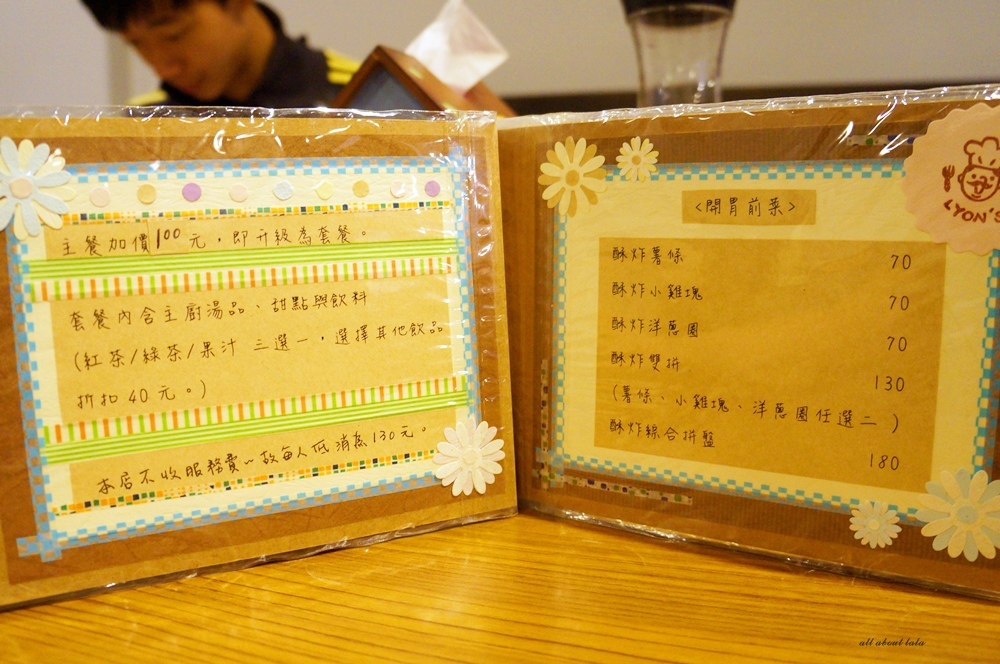 主餐加價100元，即升級為套餐。
套餐內含主廚湯品、甜點與飲料
(紅茶/綠茶/果汁 三選一，選擇其他飲品
折扣40元。)
本店不收服務費～故每人低消為130元。
<開胃前菜>
酥炸薯條 70
酥炸小雞塊 70
酥炸洋蔥圈 70
酥炸雙拼 130
(薯條、小雞塊、洋蔥圈任選二)
酥炸綜合拼盤 180
LYON'S
all about lala